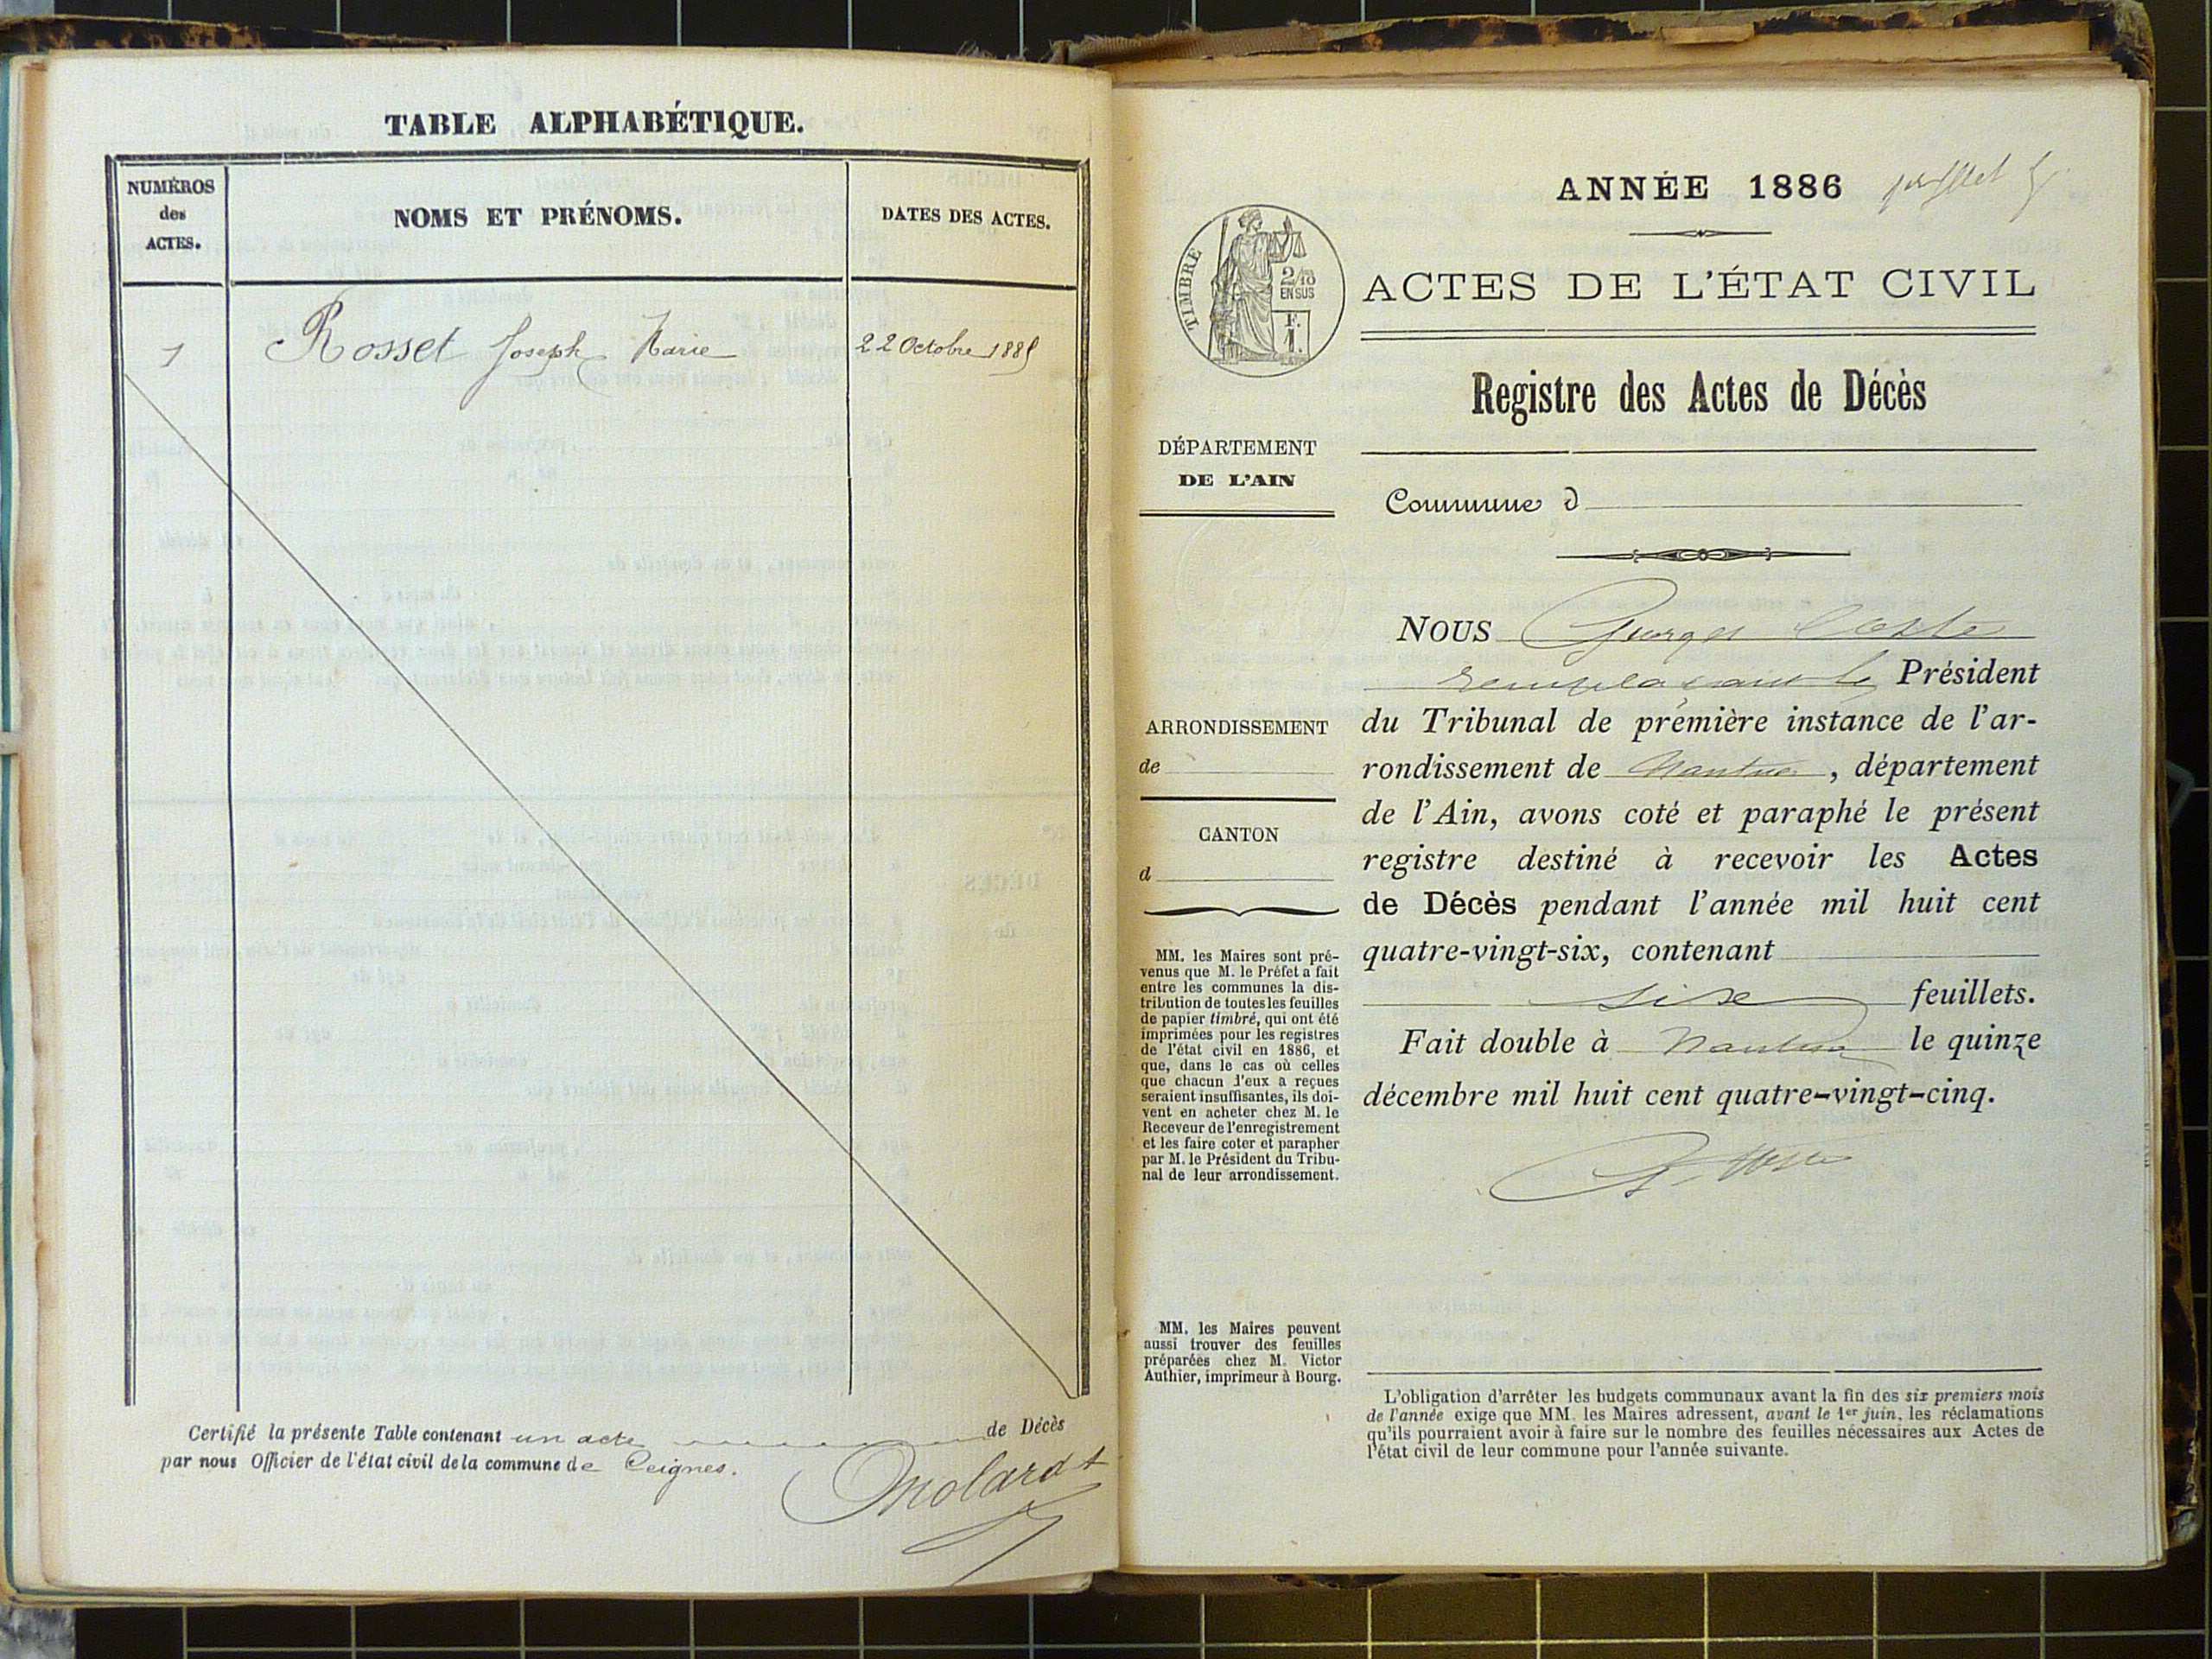 TABLE ALPHABÉTIQUE.
NUMÉROS
des
ACTES.
NOMS ET PRÉNOMS.
DATES DES ACTES.
1 Rosset Joseph Marie 22 Octobre 1885
Certifié la présente Table contenant un acte de Décès
par nous Officier de l'état civil de la commune de Ceignes.
Molard
ANNÉE 1886
TIMBRE
2/10
EN SUS
F.
1.
ACTES DE L'ÉTAT CIVIL
Registre des Actes de Décès
DÉPARTEMENT
DE L'AIN
Commune d
NOUS Georges Coste
remplaçant le Président
du Tribunal de première instance de l'ar-
rondissement de Nantua, département
de l'Ain, avons coté et paraphé le présent
registre destiné à recevoir les Actes
de Décès pendant l'année mil huit cent
quatre-vingt-six, contenant
feuillets.
Fait double à Nantua le quinze
décembre mil huit cent quatre-vingt-cinq.
ARRONDISSEMENT
de
CANTON
d
MM. les Maires sont pré-
venus que M. le Préfet a fait
entre les communes la dis-
tribution de toutes les feuilles
de papier timbré, qui ont été
imprimées pour les registres
de l'état civil en 1886, et
que, dans le cas où celles
que chacun d'eux a reçues
seraient insuffisantes, ils doi-
vent en acheter chez M. le
Receveur de l'enregistrement
et les faire coter et parapher
par M. le Président du Tribu-
nal de leur arrondissement.
MM. les Maires peuvent
aussi trouver des feuilles
préparées chez M. Victor
Authier, imprimeur à Bourg.
L'obligation d'arrêter les budgets communaux avant la fin des six premiers mois
de l'année exige que MM. les Maires adressent, avant le 1er juin, les réclamations
qu'ils pourraient avoir à faire sur le nombre des feuilles nécessaires aux Actes de
l'état civil de leur commune pour l'année suivante.